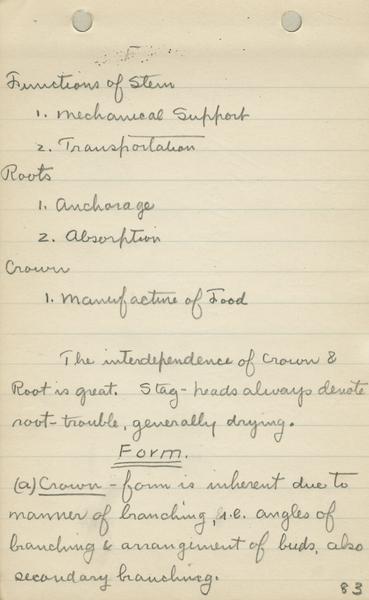 Functions of Stem
1. Mechanical Support
2. Transportation
Roots
1. Anchorage
2. Absorption
Crown
1. Manufacture of Food
The interdependence of Crown &
Root is great. Stag-heads always denote
root-trouble, generally drying.
Form.
(a) Crown - form is inherent due to
manner of branching, i.e. angles of
branching & arrangement of buds, also
secondary branching.
83